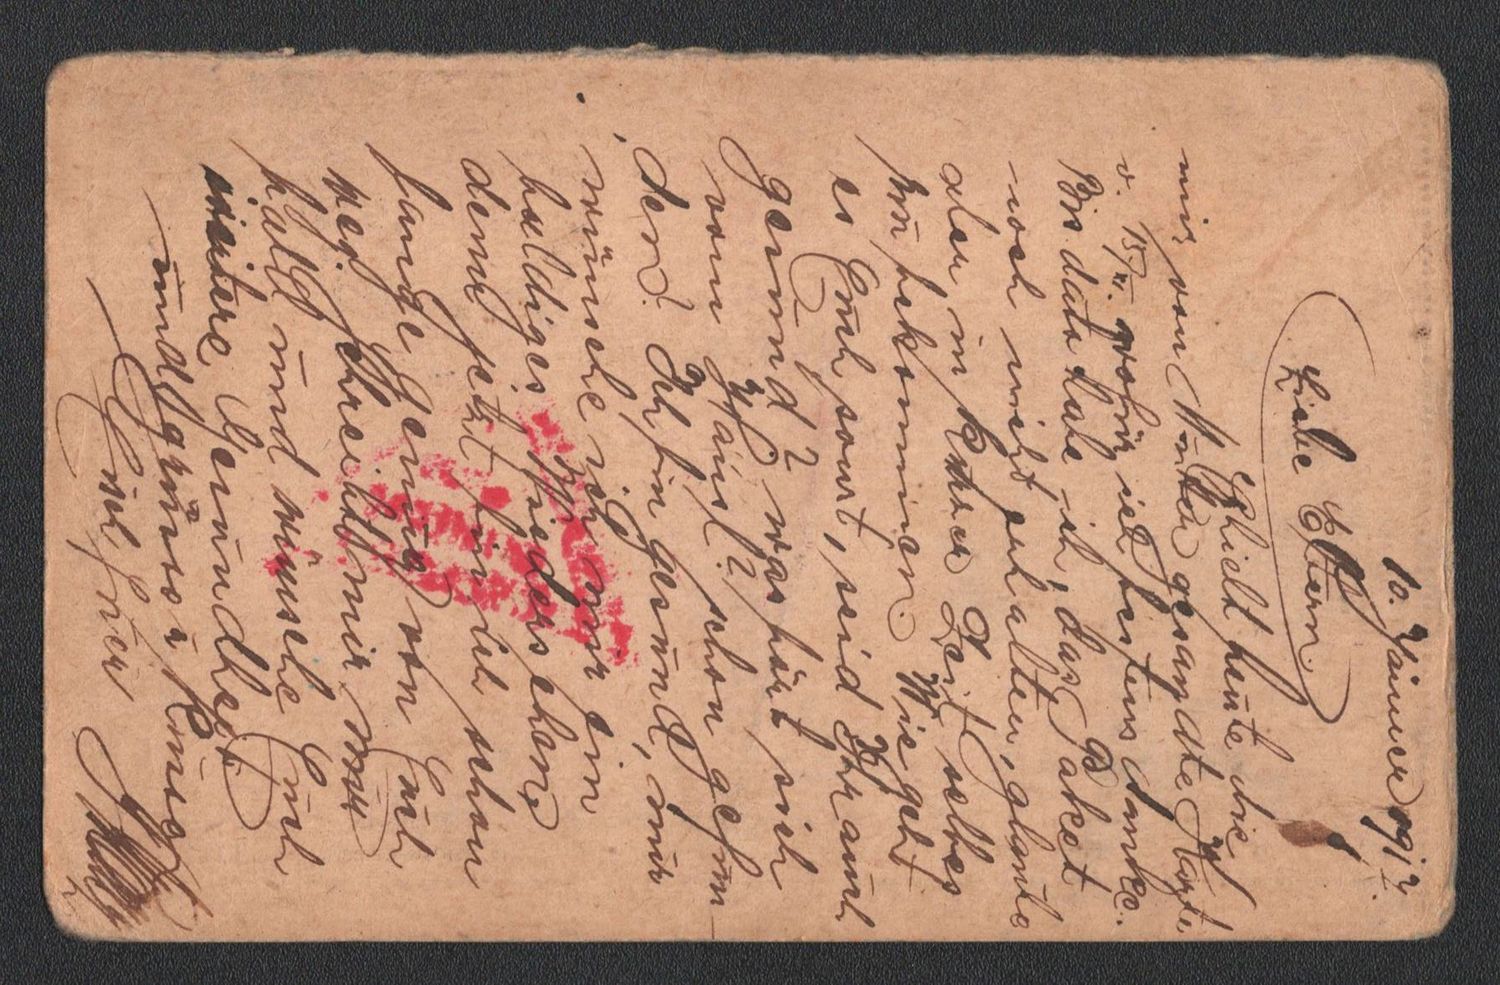 10. Jänner 1917.
Liebe Eltern.
Erhielt heute die
mir von gesandte Karte
v. 15/ wofür ich bestens danke.
Bis dato habe ich, das Paket
noch nicht erhalten, glaube
aber in kurzer Zeit selbes
zu bekommen. Wie geht
es Euch sonst, seid Ihr auch
gesund? was hört sich
vom schon gefun-
den? Ich bin gesund, nur
wünsche ich mir ein
baldiges Wiedersehen
denn jetzt bin ich schon
lange genug von Euch
weg. Schreibt mir nur
bald und wünsche Euch
weitere Gesundheit
und Grüsse u. Küsse
Euch Euer